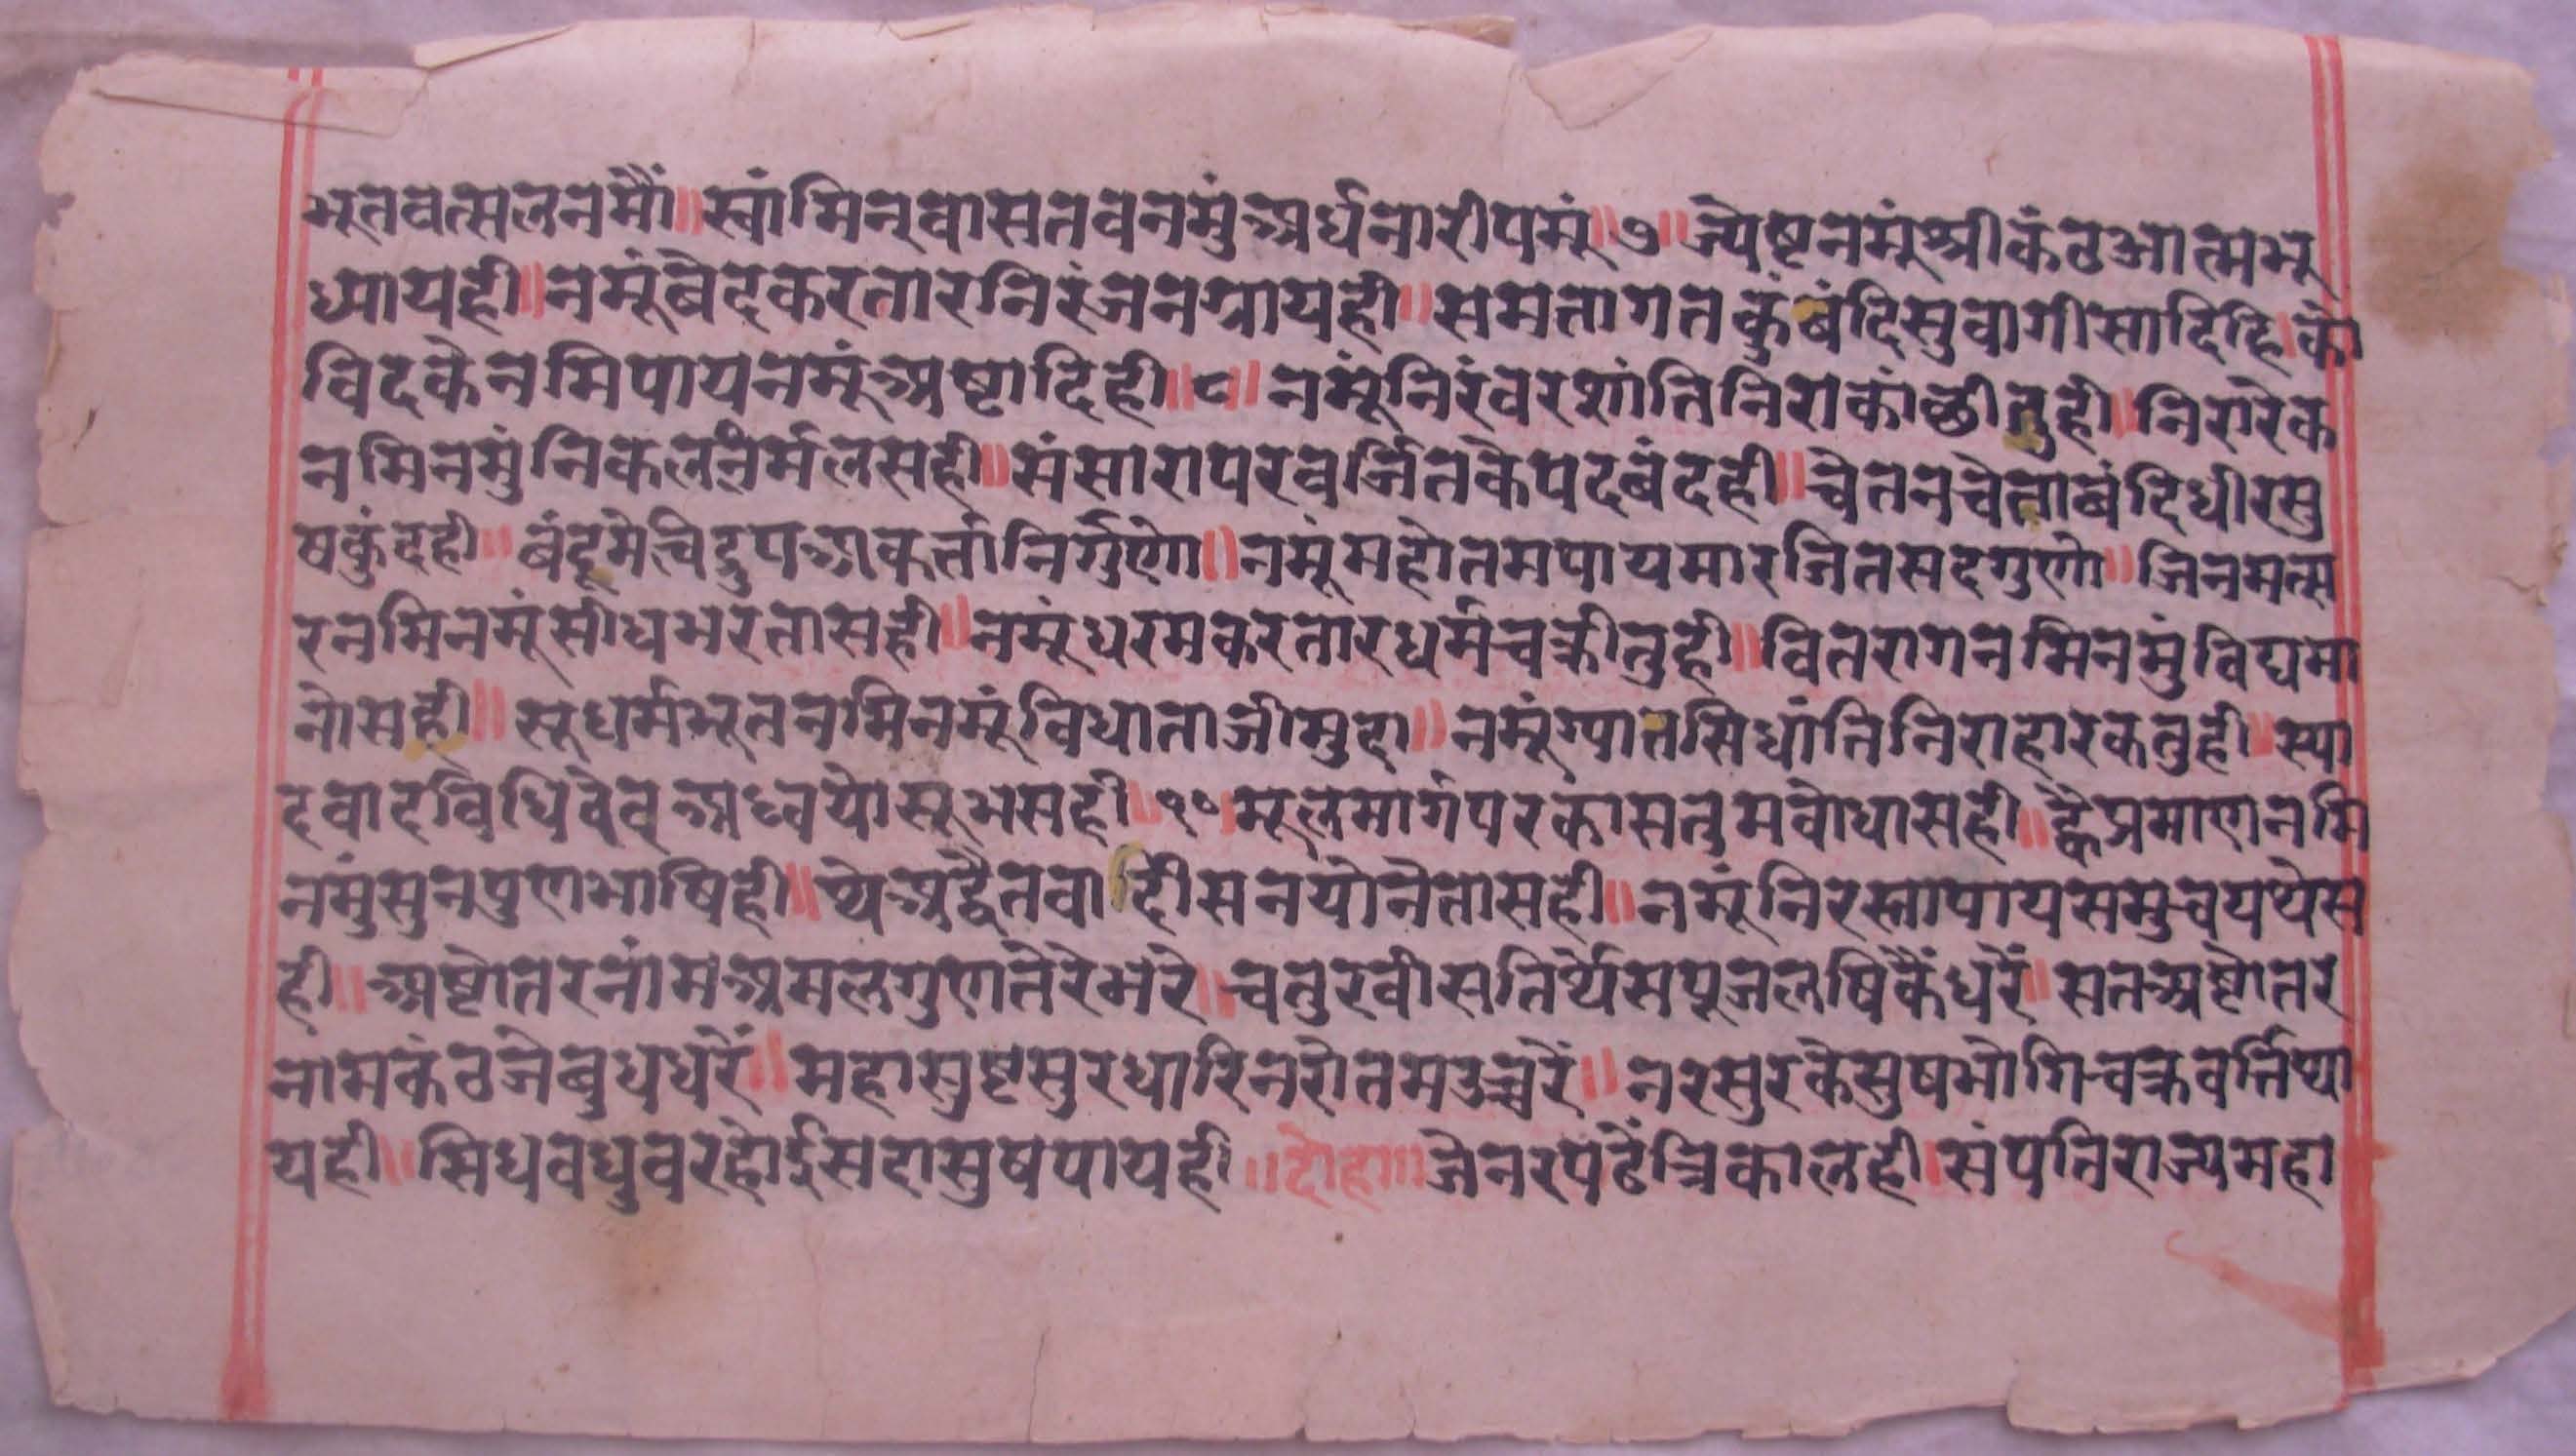 भूतवत्सलनमौं॥स्वांमिन्वासतवनमुंअर्धनारीपमूं॥७॥ज्येष्टनमूंश्रीकंठआत्मभू
ध्यायही॥नमूंबेदकरतारनिरंजनग्यायही॥समतागतकुंबंदिसुवागीसादिहि।को
विदकेनमिपायनमूंअष्टादिही॥८॥नमूंनिरंवरशांतिनिराकांछीतुही॥निरारेक
नमिनमुंनिकलनिर्मलसही॥संसारापरवर्जितकेपदबंदही॥चेतनचेताबंदिधीरसु
षकुंदही॥बंदूमेचिद्रुपअकर्तानिर्गुणो॥नमूंमहोतमपायमारजितसदगुणो॥जिनमत्स
रनमिनमूंसीधभरतासही॥नमूंधरमकरतारधर्मचक्रीतुही॥वितरागनमिनमुंविद्यमा
नोसही॥सूधर्मभूतनमिनमूंविधाताजीमुदा॥नमूंग्यातसिधांतिनिराहारकतुही॥स्या
दवादविधिवेवअध्वयोसूभसही॥१०॥मूलमार्गपरकासतुमवोधासही॥द्वैप्रमाणनमि
नमुंसुनपुणभाषिही॥थेअद्वैतवादीसनयोनेतासही॥नमूंनिरस्तापायसमुच्चयथेस
ही॥अष्टोतरनांमअमलगुणतेरेभरे॥चतुरवीसतिर्थेसपूजलषिकैंधरें॥सतअष्टोतर
नांमकंठजेबुधधरें॥महासुष्टसुरधारिनरोतमउच्चरें॥नरसुरकेसुषभोगिचक्रवर्त्तिथा
यही॥सिधवधुवरहोईसदासुषपायही॥दोहा॥जेनरपंढेंत्रिकालही।संपतिराज्यमहा